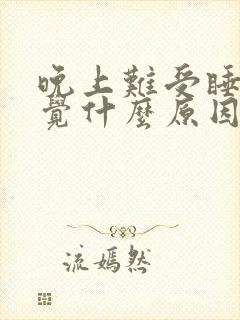 晚上難受睡
覺什麼原因
流嫣然